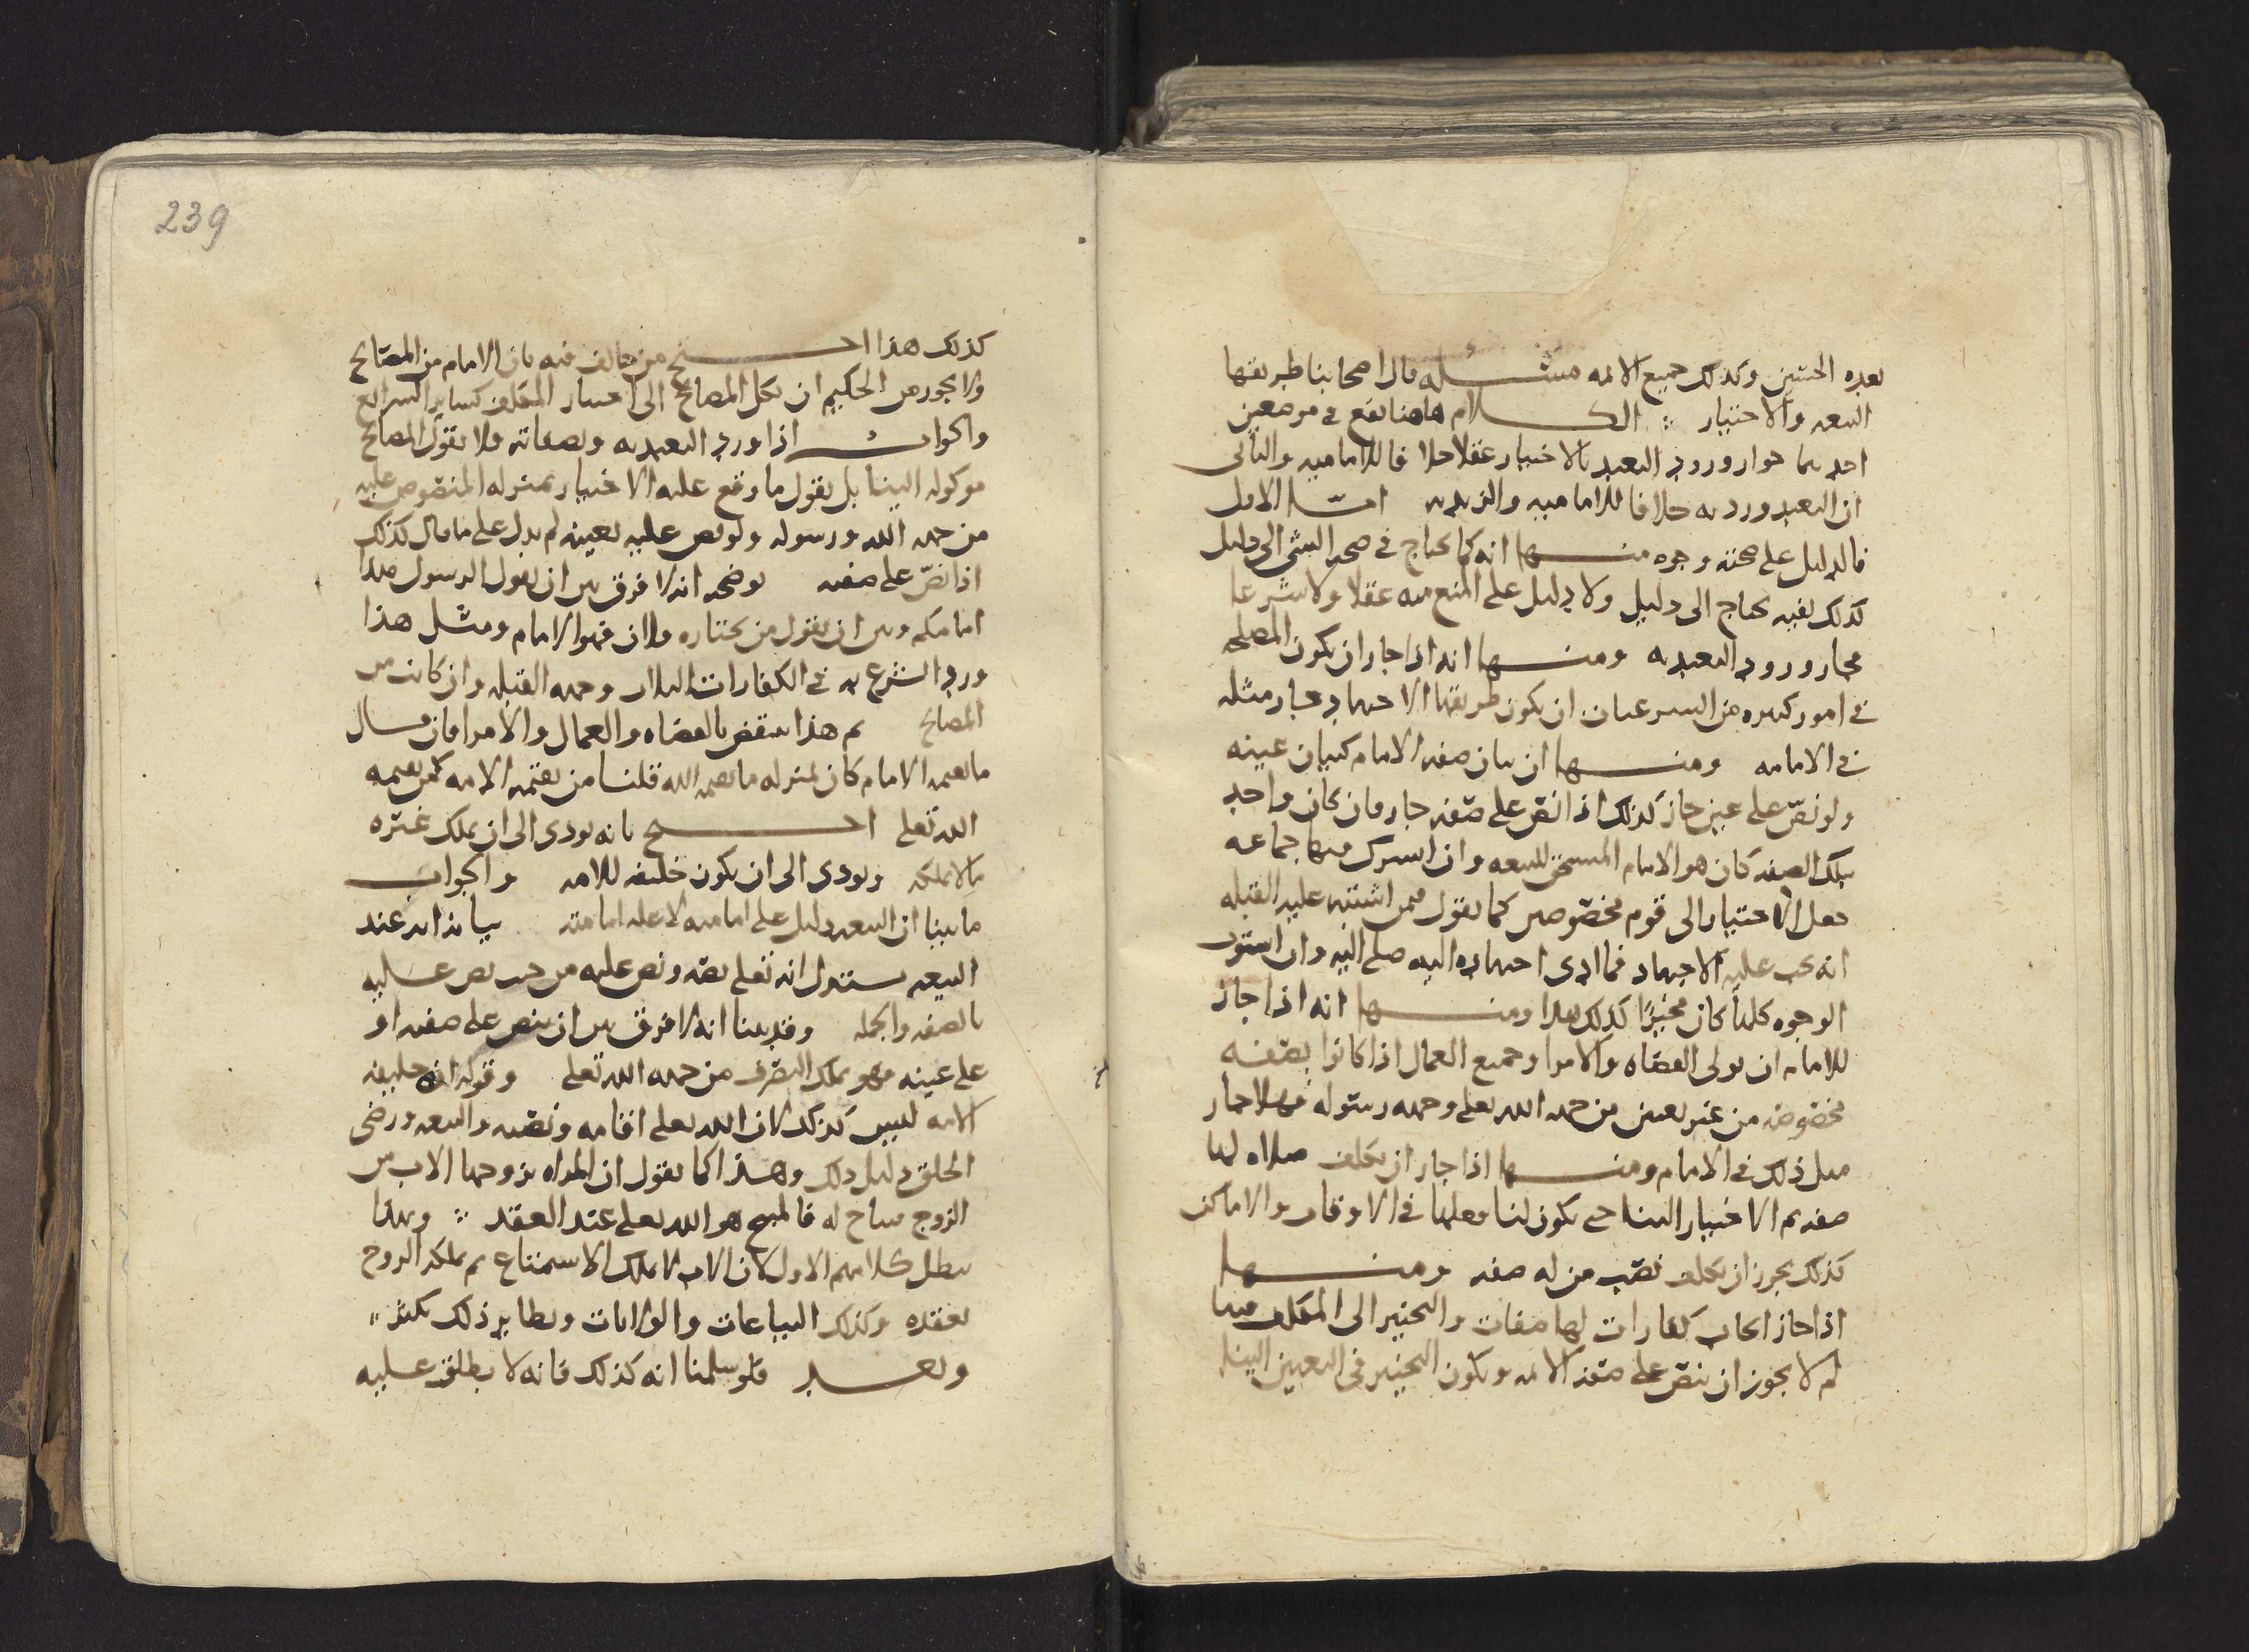 بعده الحسين وكذلك جميع الائمه مسئله قال اصحابنا طريقها
البيعه والاختيار الكلام هاهنا يقع في موضعين
احدهما جواز ورود التعبد بالاختيار عقلا خلافا للاماميه والثاني
ان التعبد ورد به خلافا للاماميه والزيديه امّا الاول
فالدليل على صحته وجوه منها انه كما يحتاج في صحه الشي الى دليل
كذلك نفيه يحتاج الى دليل ولا دليل على المنع منه عقلا ولا شرعا
فجاز ورود التعبد به ومنها انه اذا جاز ان يكون المصلحه
في امور كثيره من الشرعيات ان يكون طريقها الاجتهاد فجاز مثله
في الامامه ومنها ان بيان صفه الامام كبيان عينه
ولو نصّ على عين جاز كذلك اذا نصّ على صفه جاز فان كان واحد
بتلك الصفه كان هو الامام المستحق للبيعه وان اشترك فيها جماعه
جعل الاختيار الى قوم مخصوصين كما نقول فيمن اشتبه عليه القبله
انه يجب عليه الاجتهاد فما ادى اجتهاده اليه صلى اليه وان استوت
الوجوه كلها كان مخيرًا كذلك هذا ومنها انه اذا جاز
للامام ان يولى القضاه والامرا وجميع العمال اذا كانوا بصفه
مخصوصه من غير تعيين من جهه الله تعلى وجهه رسوله فهلا جاز
مثل ذلك في الامام ومنها اذا جاز ان يكلف صلاه لها
صفه ثم الاختيار الينا حتى يكون لنا فعلها في الاوقات والاماكن
كذلك يجوز ان يكلف نصب من له صفه ومنها
اذا جاز ايجاب كفارات لها صفات والتخيير الى المكلف فيها
لم لا يجوز ان ينصّ على صفه الائمه ويكون التخيير في التعيين الينا
239
كذلك هذا احتج من خالف فيه بان الامام من المصالح
ولا يجوز من الحكيم ان يكل المصالح الى اختيار المكلف كساير الشرائع
والجواب اذا ورد التعبد به وبصفاته فلا نقول المصالح
موكوله الينا بل نقول ما وقع عليه الاختيار بمنزله المنصوص عليه
من جهه الله ورسوله ولو نص عليه بعينه لم يدل على ما قال كذلك
اذا نصّ على صفه يوضحه انه لا فرق بين ان يقول الرسول هذا
امامكم وبين ان يقول من يختاره فلان فهو الامام ومثل هذا
ورد الشرع به في الكفارات الثلاث وجهه القبله وان كانت من
المصالح ثم هذا ينتقض بالقضاه والعمال والامرا فان قال
ما يقيمه الامام كان بمنزله ما يقيمه الله قلنا من يقيمه الامه كمن يقيمه
الله تعلى احتج بانه يودى الى ان يملك غيره
ما لا يملكه ويودى الى ان يكون خليفه للامه والجواب
ما بينا ان البيعه دليل على امامته لا عله امامته بيانه انه عند
البيعه يستدل انه تعلى نصّه ونص عليه من حيث نص عليه
بالصفه والجمله وقد بينا انه لا فرق بين ان ينص على صفه او
على عينه فهو يملك التصرف من جهه الله تعلى وقوله انه خليفه
الامه ليس كذلك لان الله تعلى اقامه ونصبه والبيعه ورضى
الخلق دليل ذلك وهذا كما نقول ان المراه يزوجها الاب من
الزوج مباح له فالمبيح هو الله تعلى عند العقد وبهذا
يبطل كلامهم الاول لان الاب لا يملك الاستمتاع ثم يملكه الزوج
بعقده وكذلك البياعات والولايات ونظاير ذلك يكثر
وبعد فلو سلمنا انه كذلك فانه لا يطلق عليه